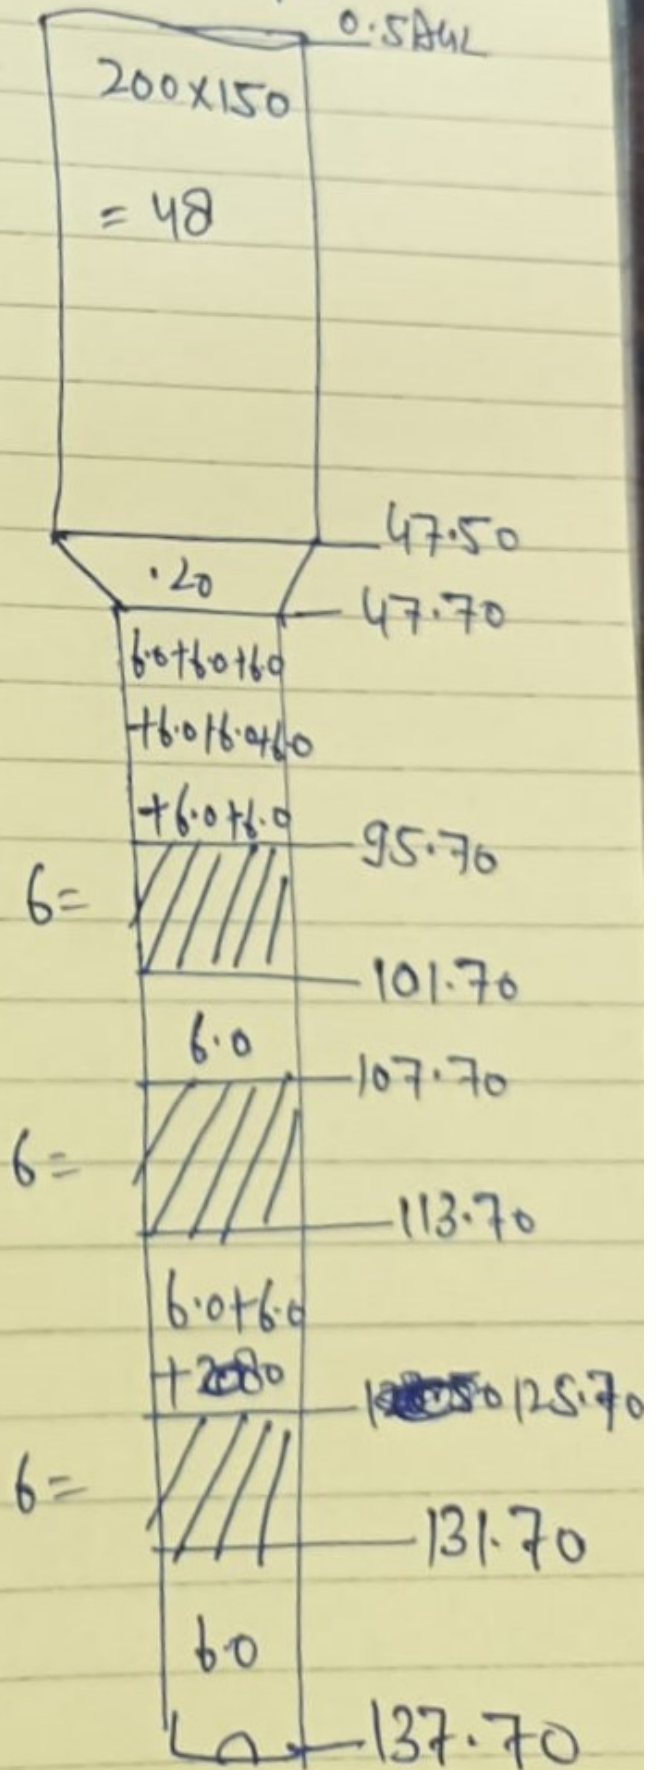 0.5AGL
200x150
= 48
47.50
.20
47.70
6.0+6.0+6.0
+6.0+6.0+6.0
+6.0+6.0
95.70
6=
101.70
6.0
107.70
6=
113.70
6.0+6.0
125.70
6=
131.70
6.0
137.70